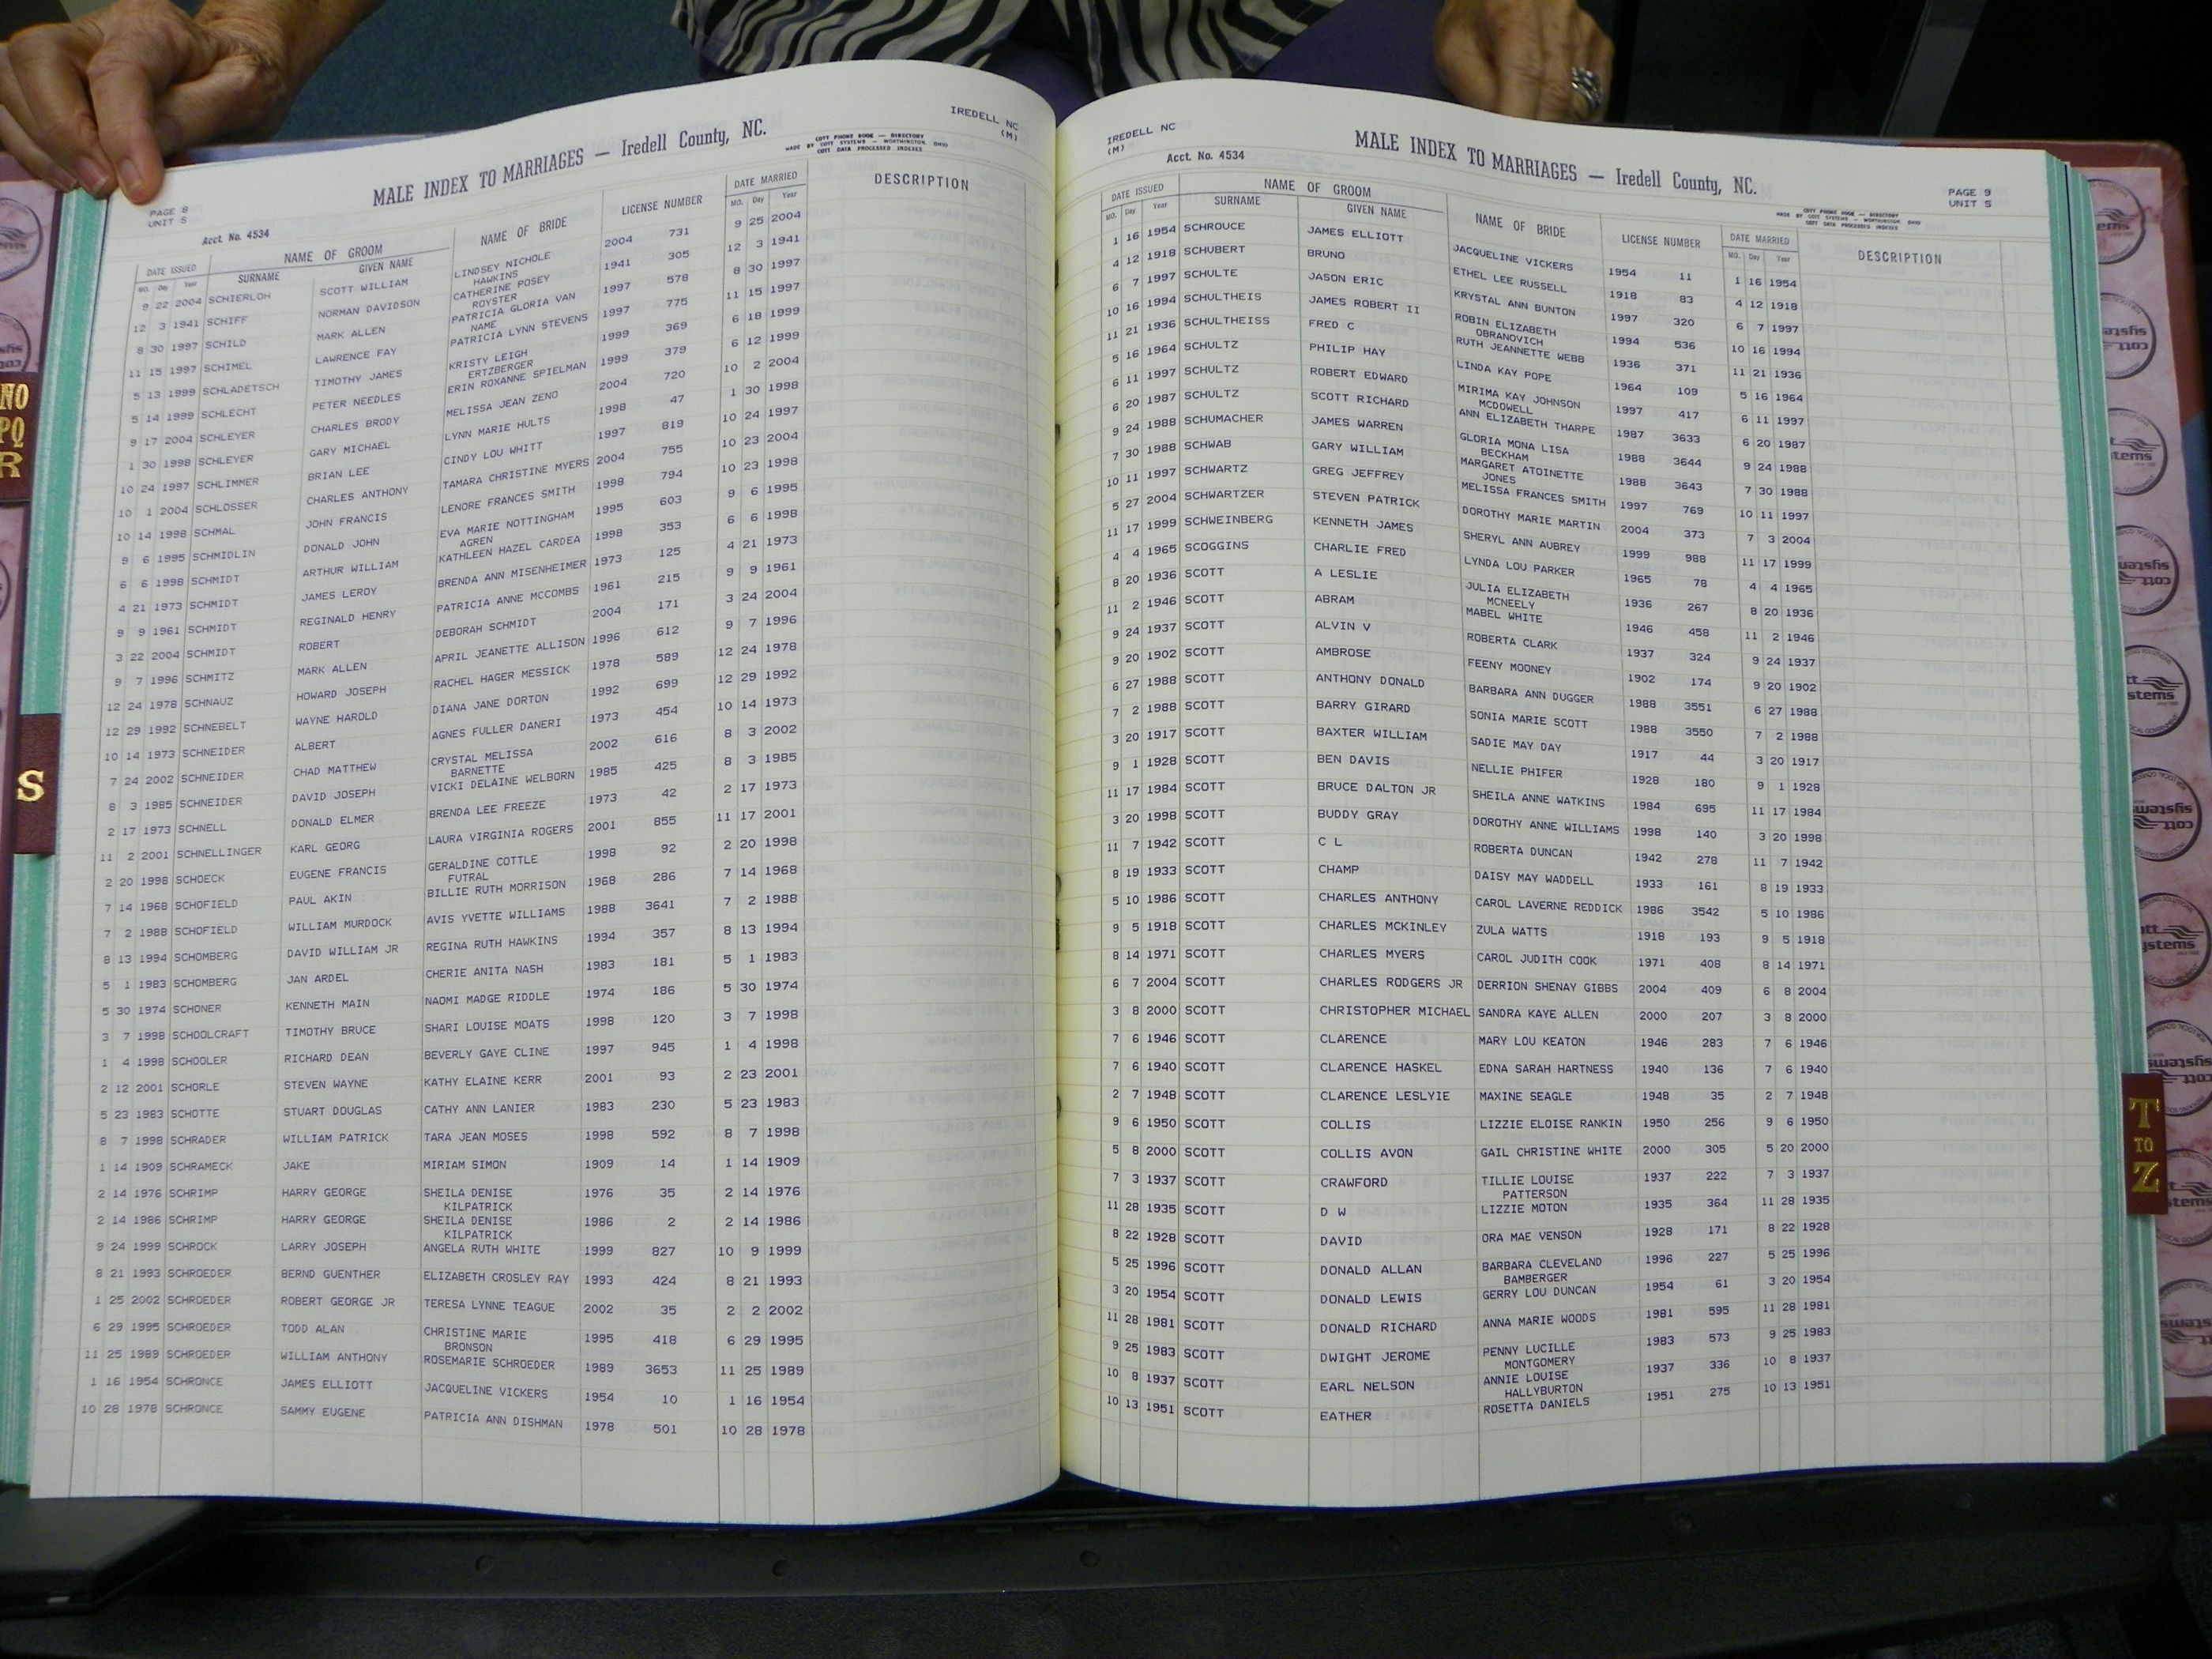 IREDELL NC
(M)
MALE INDEX TO MARRIAGES — Iredell County, NC.
COTT PHONE BOOK — DIRECTORY
MADE BY COTT SYSTEMS — WORTHINGTON, OHIO
COTT DATA PROCESSED INDEXES
PAGE 8
UNIT S
Acct. No. 4534
DATE ISSUED NAME OF GROOM NAME OF BRIDE LICENSE NUMBER DATE MARRIED DESCRIPTION
MO. Day Year SURNAME GIVEN NAME MO. Day Year
9 22 2004 SCHIERLOH SCOTT WILLIAM LINDSEY NICHOLE 2004 731 9 25 2004
HAWKINS
12 3 1941 SCHIFF NORMAN DAVIDSON CATHERINE POSEY 1941 305 12 3 1941
ROYSTER
8 30 1997 SCHILD MARK ALLEN PATRICIA GLORIA VAN 1997 578 8 30 1997
NAME
11 15 1997 SCHIMEL LAWRENCE FAY PATRICIA LYNN STEVENS 1997 775 11 15 1997
5 13 1999 SCHLADETSCH TIMOTHY JAMES KRISTY LEIGH 1999 369 6 18 1999
ERTZBERGER
5 14 1999 SCHLECHT PETER NEEDLES ERIN ROXANNE SPIELMAN 1999 379 6 12 1999
9 17 2004 SCHLEYER CHARLES BRODY MELISSA JEAN ZENO 2004 720 10 2 2004
1 30 1998 SCHLEYER GARY MICHAEL LYNN MARIE HULTS 1998 47 1 30 1998
10 24 1997 SCHLIMMER BRIAN LEE CINDY LOU WHITT 1997 819 10 24 1997
10 1 2004 SCHLOSSER CHARLES ANTHONY TAMARA CHRISTINE MYERS 2004 755 10 23 2004
10 14 1998 SCHMAL JOHN FRANCIS LENORE FRANCES SMITH 1998 794 10 23 1998
9 6 1995 SCHMIDLIN DONALD JOHN EVA MARIE NOTTINGHAM 1995 603 9 6 1995
AGREN
6 6 1998 SCHMIDT ARTHUR WILLIAM KATHLEEN HAZEL CARDEA 1998 353 6 6 1998
4 21 1973 SCHMIDT JAMES LEROY BRENDA ANN MISENHEIMER 1973 125 4 21 1973
9 9 1961 SCHMIDT REGINALD HENRY PATRICIA ANNE MCCOMBS 1961 215 9 9 1961
3 22 2004 SCHMIDT ROBERT DEBORAH SCHMIDT 2004 171 3 24 2004
9 7 1996 SCHMITZ MARK ALLEN APRIL JEANETTE ALLISON 1996 612 9 7 1996
12 24 1978 SCHNAUZ HOWARD JOSEPH RACHEL HAGER MESSICK 1978 589 12 24 1978
12 29 1992 SCHNEBELT WAYNE HAROLD DIANA JANE DORTON 1992 699 12 29 1992
10 14 1973 SCHNEIDER ALBERT AGNES FULLER DANERI 1973 454 10 14 1973
7 24 2002 SCHNEIDER CHAD MATTHEW CRYSTAL MELISSA 2002 616 8 3 2002
BARNETTE
8 3 1985 SCHNEIDER DAVID JOSEPH VICKI DELAINE WELBORN 1985 425 8 3 1985
2 17 1973 SCHNELL DONALD ELMER BRENDA LEE FREEZE 1973 42 2 17 1973
11 2 2001 SCHNELLINGER KARL GEORG LAURA VIRGINIA ROGERS 2001 855 11 17 2001
2 20 1998 SCHOECK EUGENE FRANCIS GERALDINE COTTLE 1998 92 2 20 1998
FUTRAL
7 14 1968 SCHOFIELD PAUL AKIN BILLIE RUTH MORRISON 1968 286 7 14 1968
7 2 1988 SCHOFIELD WILLIAM MURDOCK AVIS YVETTE WILLIAMS 1988 3641 7 2 1988
8 13 1994 SCHOMBERG DAVID WILLIAM JR REGINA RUTH HAWKINS 1994 357 8 13 1994
5 1 1983 SCHOMBERG JAN ARDEL CHERIE ANITA NASH 1983 181 5 1 1983
5 30 1974 SCHONER KENNETH MAIN NAOMI MADGE RIDDLE 1974 186 5 30 1974
3 7 1998 SCHOOLCRAFT TIMOTHY BRUCE SHARI LOUISE MOATS 1998 120 3 7 1998
1 4 1998 SCHOOLER RICHARD DEAN BEVERLY GAYE CLINE 1997 945 1 4 1998
2 12 2001 SCHORLE STEVEN WAYNE KATHY ELAINE KERR 2001 93 2 23 2001
5 23 1983 SCHOTTE STUART DOUGLAS CATHY ANN LANIER 1983 230 5 23 1983
8 7 1998 SCHRADER WILLIAM PATRICK TARA JEAN MOSES 1998 592 8 7 1998
1 14 1909 SCHRAMECK JAKE MIRIAM SIMON 1909 14 1 14 1909
2 14 1976 SCHRIMP HARRY GEORGE SHEILA DENISE 1976 35 2 14 1976
KILPATRICK
2 14 1986 SCHRIMP HARRY GEORGE SHEILA DENISE 1986 2 2 14 1986
KILPATRICK
9 24 1999 SCHROCK LARRY JOSEPH ANGELA RUTH WHITE 1999 827 10 9 1999
8 21 1993 SCHROEDER BERND GUENTHER ELIZABETH CROSLEY RAY 1993 424 8 21 1993
1 25 2002 SCHROEDER ROBERT GEORGE JR TERESA LYNNE TEAGUE 2002 35 2 2 2002
6 29 1995 SCHROEDER TODD ALAN CHRISTINE MARIE 1995 418 6 29 1995
BRONSON
11 25 1989 SCHROEDER WILLIAM ANTHONY ROSEMARIE SCHROEDER 1989 3653 11 25 1989
1 16 1954 SCHRONCE JAMES ELLIOTT JACQUELINE VICKERS 1954 10 1 16 1954
10 28 1978 SCHRONCE SAMMY EUGENE PATRICIA ANN DISHMAN 1978 501 10 28 1978
IREDELL NC
(M)
Acct. No. 4534
MALE INDEX TO MARRIAGES — Iredell County, NC.
PAGE 9
UNIT S
COTT PHONE BOOK — DIRECTORY
MADE BY COTT SYSTEMS — WORTHINGTON, OHIO
COTT DATA PROCESSED INDEXES
DATE ISSUED NAME OF GROOM NAME OF BRIDE LICENSE NUMBER DATE MARRIED DESCRIPTION
MO. Day Year SURNAME GIVEN NAME MO. Day Year
1 16 1954 SCHROUCE JAMES ELLIOTT JACQUELINE VICKERS 1954 11 1 16 1954
4 12 1918 SCHUBERT BRUNO ETHEL LEE RUSSELL 1918 83 4 12 1918
6 7 1997 SCHULTE JASON ERIC KRYSTAL ANN BUNTON 1997 320 6 7 1997
10 16 1994 SCHULTHEIS JAMES ROBERT II ROBIN ELIZABETH 1994 536 10 16 1994
OBRANOVICH
11 21 1936 SCHULTHEISS FRED C RUTH JEANNETTE WEBB 1936 371 11 21 1936
5 16 1964 SCHULTZ PHILIP HAY LINDA KAY POPE 1964 109 5 16 1964
6 11 1997 SCHULTZ ROBERT EDWARD MIRIMA KAY JOHNSON 1997 417 6 11 1997
MCDOWELL
6 20 1987 SCHULTZ SCOTT RICHARD ANN ELIZABETH THARPE 1987 3633 6 20 1987
9 24 1988 SCHUMACHER JAMES WARREN GLORIA MONA LISA 1988 3644 9 24 1988
BECKHAM
7 30 1988 SCHWAB GARY WILLIAM MARGARET ATOINETTE 1988 3643 7 30 1988
JONES
10 11 1997 SCHWARTZ GREG JEFFREY MELISSA FRANCES SMITH 1997 769 10 11 1997
5 27 2004 SCHWARTZER STEVEN PATRICK DOROTHY MARIE MARTIN 2004 373 7 3 2004
11 17 1999 SCHWEINBERG KENNETH JAMES SHERYL ANN AUBREY 1999 988 11 17 1999
4 4 1965 SCOGGINS CHARLIE FRED LYNDA LOU PARKER 1965 78 4 4 1965
8 20 1936 SCOTT A LESLIE JULIA ELIZABETH 1936 267 8 20 1936
MCNEELY
11 2 1946 SCOTT ABRAM MABEL WHITE 1946 458 11 2 1946
9 24 1937 SCOTT ALVIN V ROBERTA CLARK 1937 324 9 24 1937
9 20 1902 SCOTT AMBROSE FEENY MOONEY 1902 174 9 20 1902
6 27 1988 SCOTT ANTHONY DONALD BARBARA ANN DUGGER 1988 3551 6 27 1988
7 2 1988 SCOTT BARRY GIRARD SONIA MARIE SCOTT 1988 3550 7 2 1988
3 20 1917 SCOTT BAXTER WILLIAM SADIE MAY DAY 1917 44 3 20 1917
9 1 1928 SCOTT BEN DAVIS NELLIE PHIFER 1928 180 9 1 1928
11 17 1984 SCOTT BRUCE DALTON JR SHEILA ANNE WATKINS 1984 695 11 17 1984
3 20 1998 SCOTT BUDDY GRAY DOROTHY ANNE WILLIAMS 1998 140 3 20 1998
11 7 1942 SCOTT C L ROBERTA DUNCAN 1942 278 11 7 1942
8 19 1933 SCOTT CHAMP DAISY MAY WADDELL 1933 161 8 19 1933
5 10 1986 SCOTT CHARLES ANTHONY CAROL LAVERNE REDDICK 1986 3542 5 10 1986
9 5 1918 SCOTT CHARLES MCKINLEY ZULA WATTS 1918 193 9 5 1918
8 14 1971 SCOTT CHARLES MYERS CAROL JUDITH COOK 1971 408 8 14 1971
6 7 2004 SCOTT CHARLES RODGERS JR DERRION SHENAY GIBBS 2004 409 6 8 2004
3 8 2000 SCOTT CHRISTOPHER MICHAEL SANDRA KAYE ALLEN 2000 207 3 8 2000
7 6 1946 SCOTT CLARENCE MARY LOU KEATON 1946 283 7 6 1946
7 6 1940 SCOTT CLARENCE HASKEL EDNA SARAH HARTNESS 1940 136 7 6 1940
2 7 1948 SCOTT CLARENCE LESLYIE MAXINE SEAGLE 1948 35 2 7 1948
9 6 1950 SCOTT COLLIS LIZZIE ELOISE RANKIN 1950 256 9 6 1950
5 8 2000 SCOTT COLLIS AVON GAIL CHRISTINE WHITE 2000 305 5 20 2000
7 3 1937 SCOTT CRAWFORD TILLIE LOUISE 1937 222 7 3 1937
PATTERSON
11 28 1935 SCOTT D W LIZZIE MOTON 1935 364 11 28 1935
8 22 1928 SCOTT DAVID ORA MAE VENSON 1928 171 8 22 1928
5 25 1996 SCOTT DONALD ALLAN BARBARA CLEVELAND 1996 227 5 25 1996
BAMBERGER
3 20 1954 SCOTT DONALD LEWIS GERRY LOU DUNCAN 1954 61 3 20 1954
11 28 1981 SCOTT DONALD RICHARD ANNA MARIE WOODS 1981 595 11 28 1981
9 25 1983 SCOTT DWIGHT JEROME PENNY LUCILLE 1983 573 9 25 1983
MONTGOMERY
10 8 1937 SCOTT EARL NELSON ANNIE LOUISE 1937 336 10 8 1937
HALLYBURTON
10 13 1951 SCOTT EATHER ROSETTA DANIELS 1951 275 10 13 1951
NO
PQ
R
S
T
TO
Z